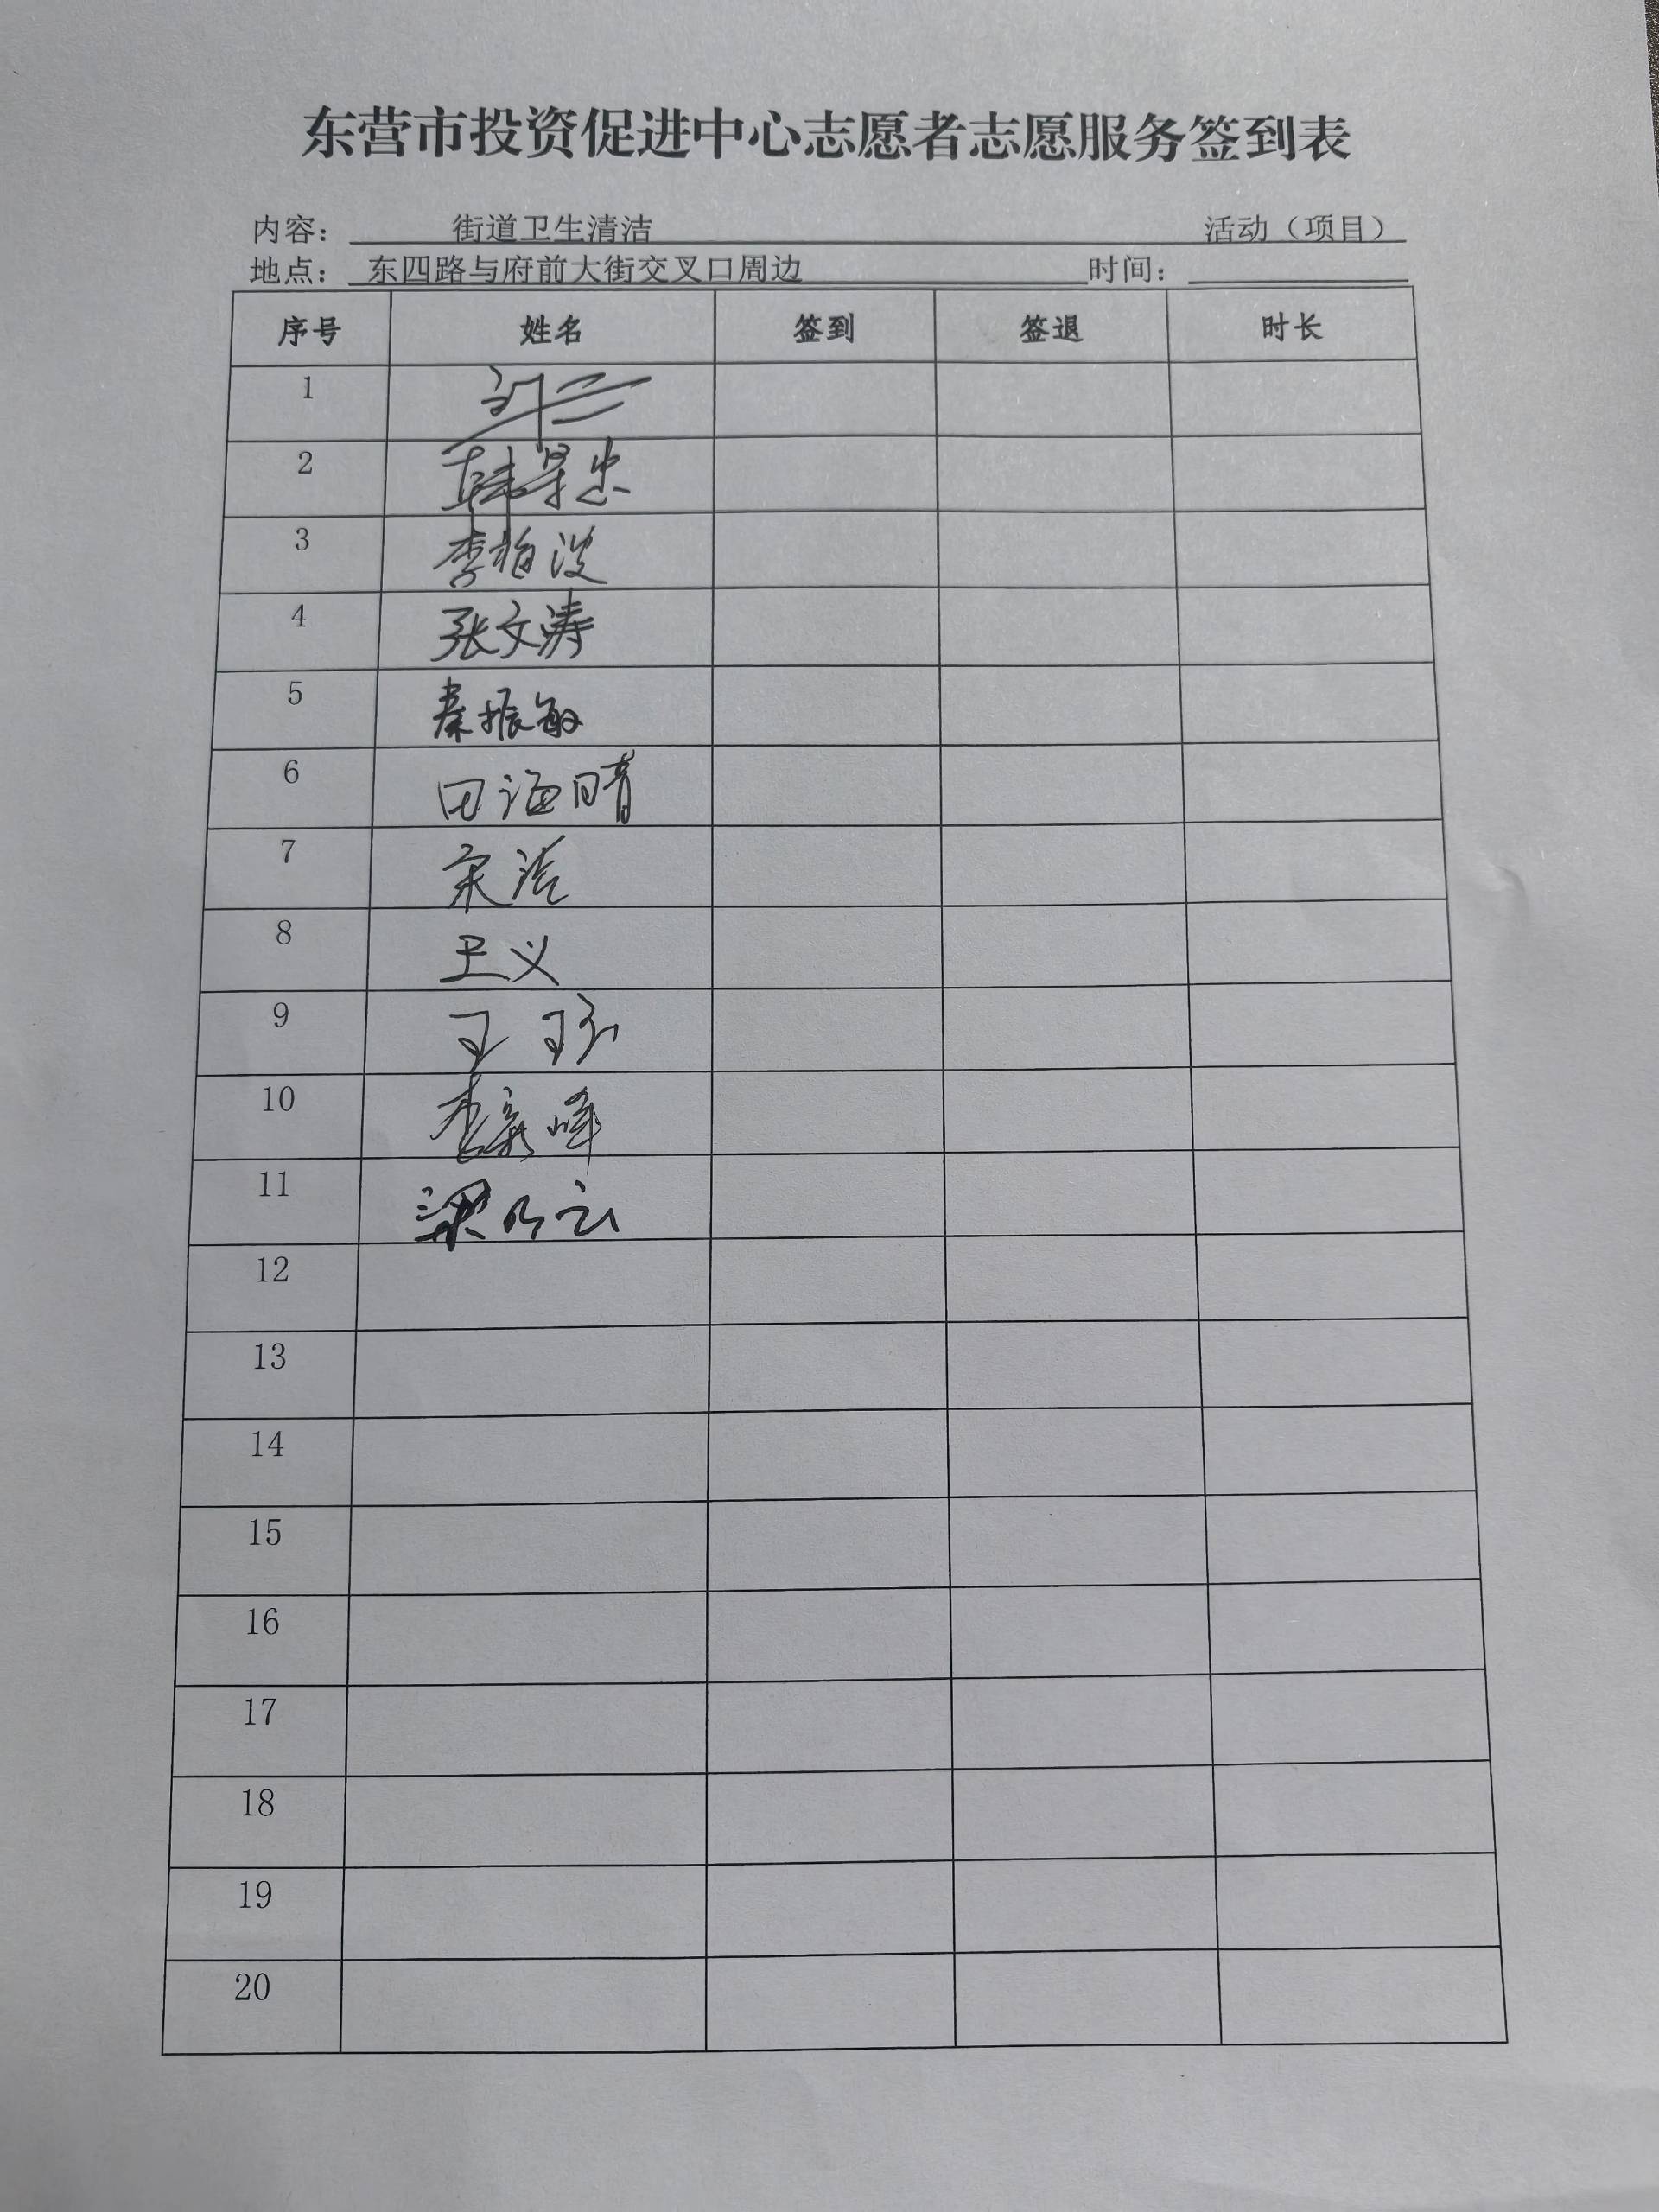 东营市投资促进中心志愿者志愿服务签到表
内容： 街道卫生清洁 活动（项目）
地点： 东四路与府前大街交叉口周边 时间：
序号 姓名 签到 签退 时长
1
2 韩景忠
3 李柏波
4 张文涛
5 秦振敏
6 田海晴
7 宋洁
8 王义
9 王珍
10 李新峰
11 梁
12
13
14
15
16
17
18
19
20